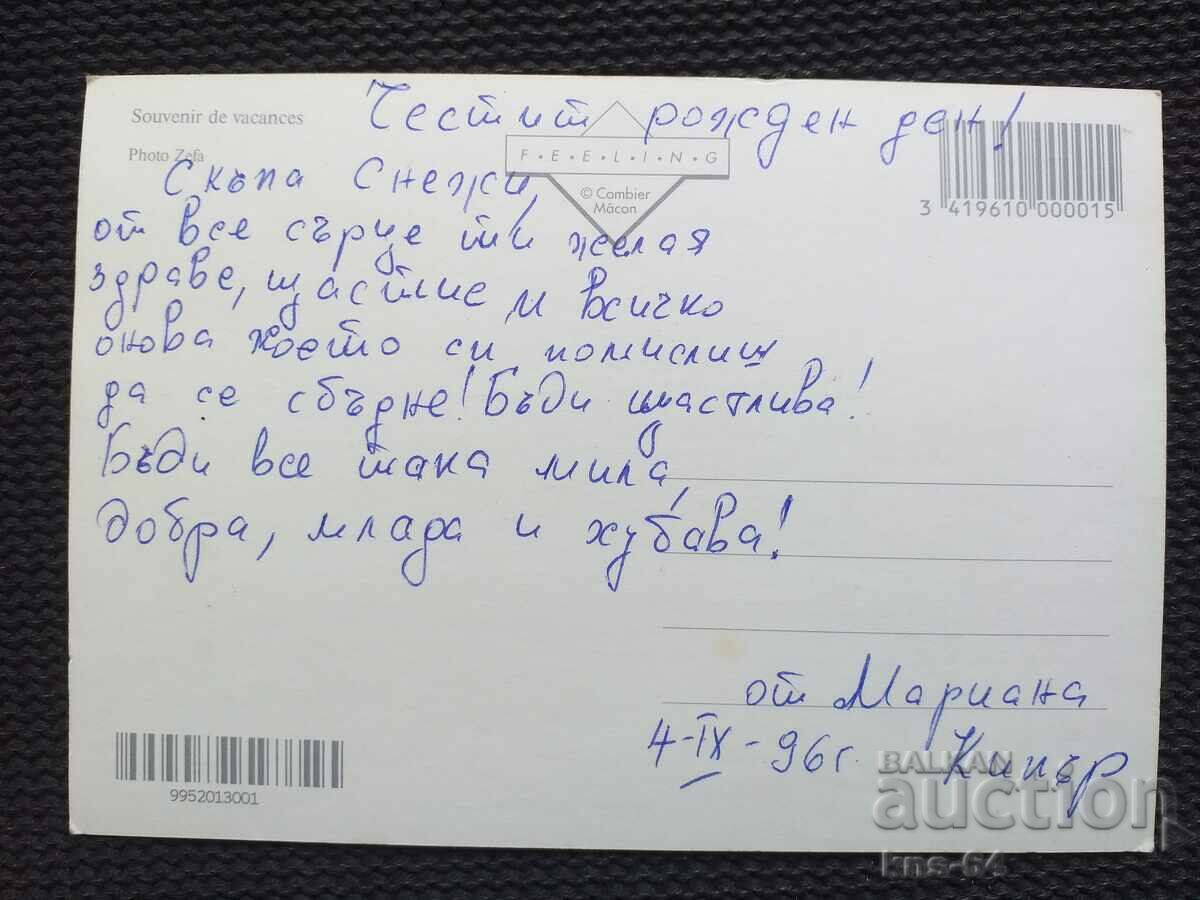 Souvenir de vacances
Photo Zefa
Честит рожден ден!
F•E•E•L•I•N•G
© Combier
Mâcon
3 419610 000015
Скъпа Снежи,
от все сърце ти желая
здраве, щастие и всичко
онова което си помислиш
да се сбъдне! Бъди щастлива!
Бъди все така мила,
добра, млада и хубава!
от Мариана
4-IX-96г. Кипър
9952013001
BALKAN
auction
kns-64